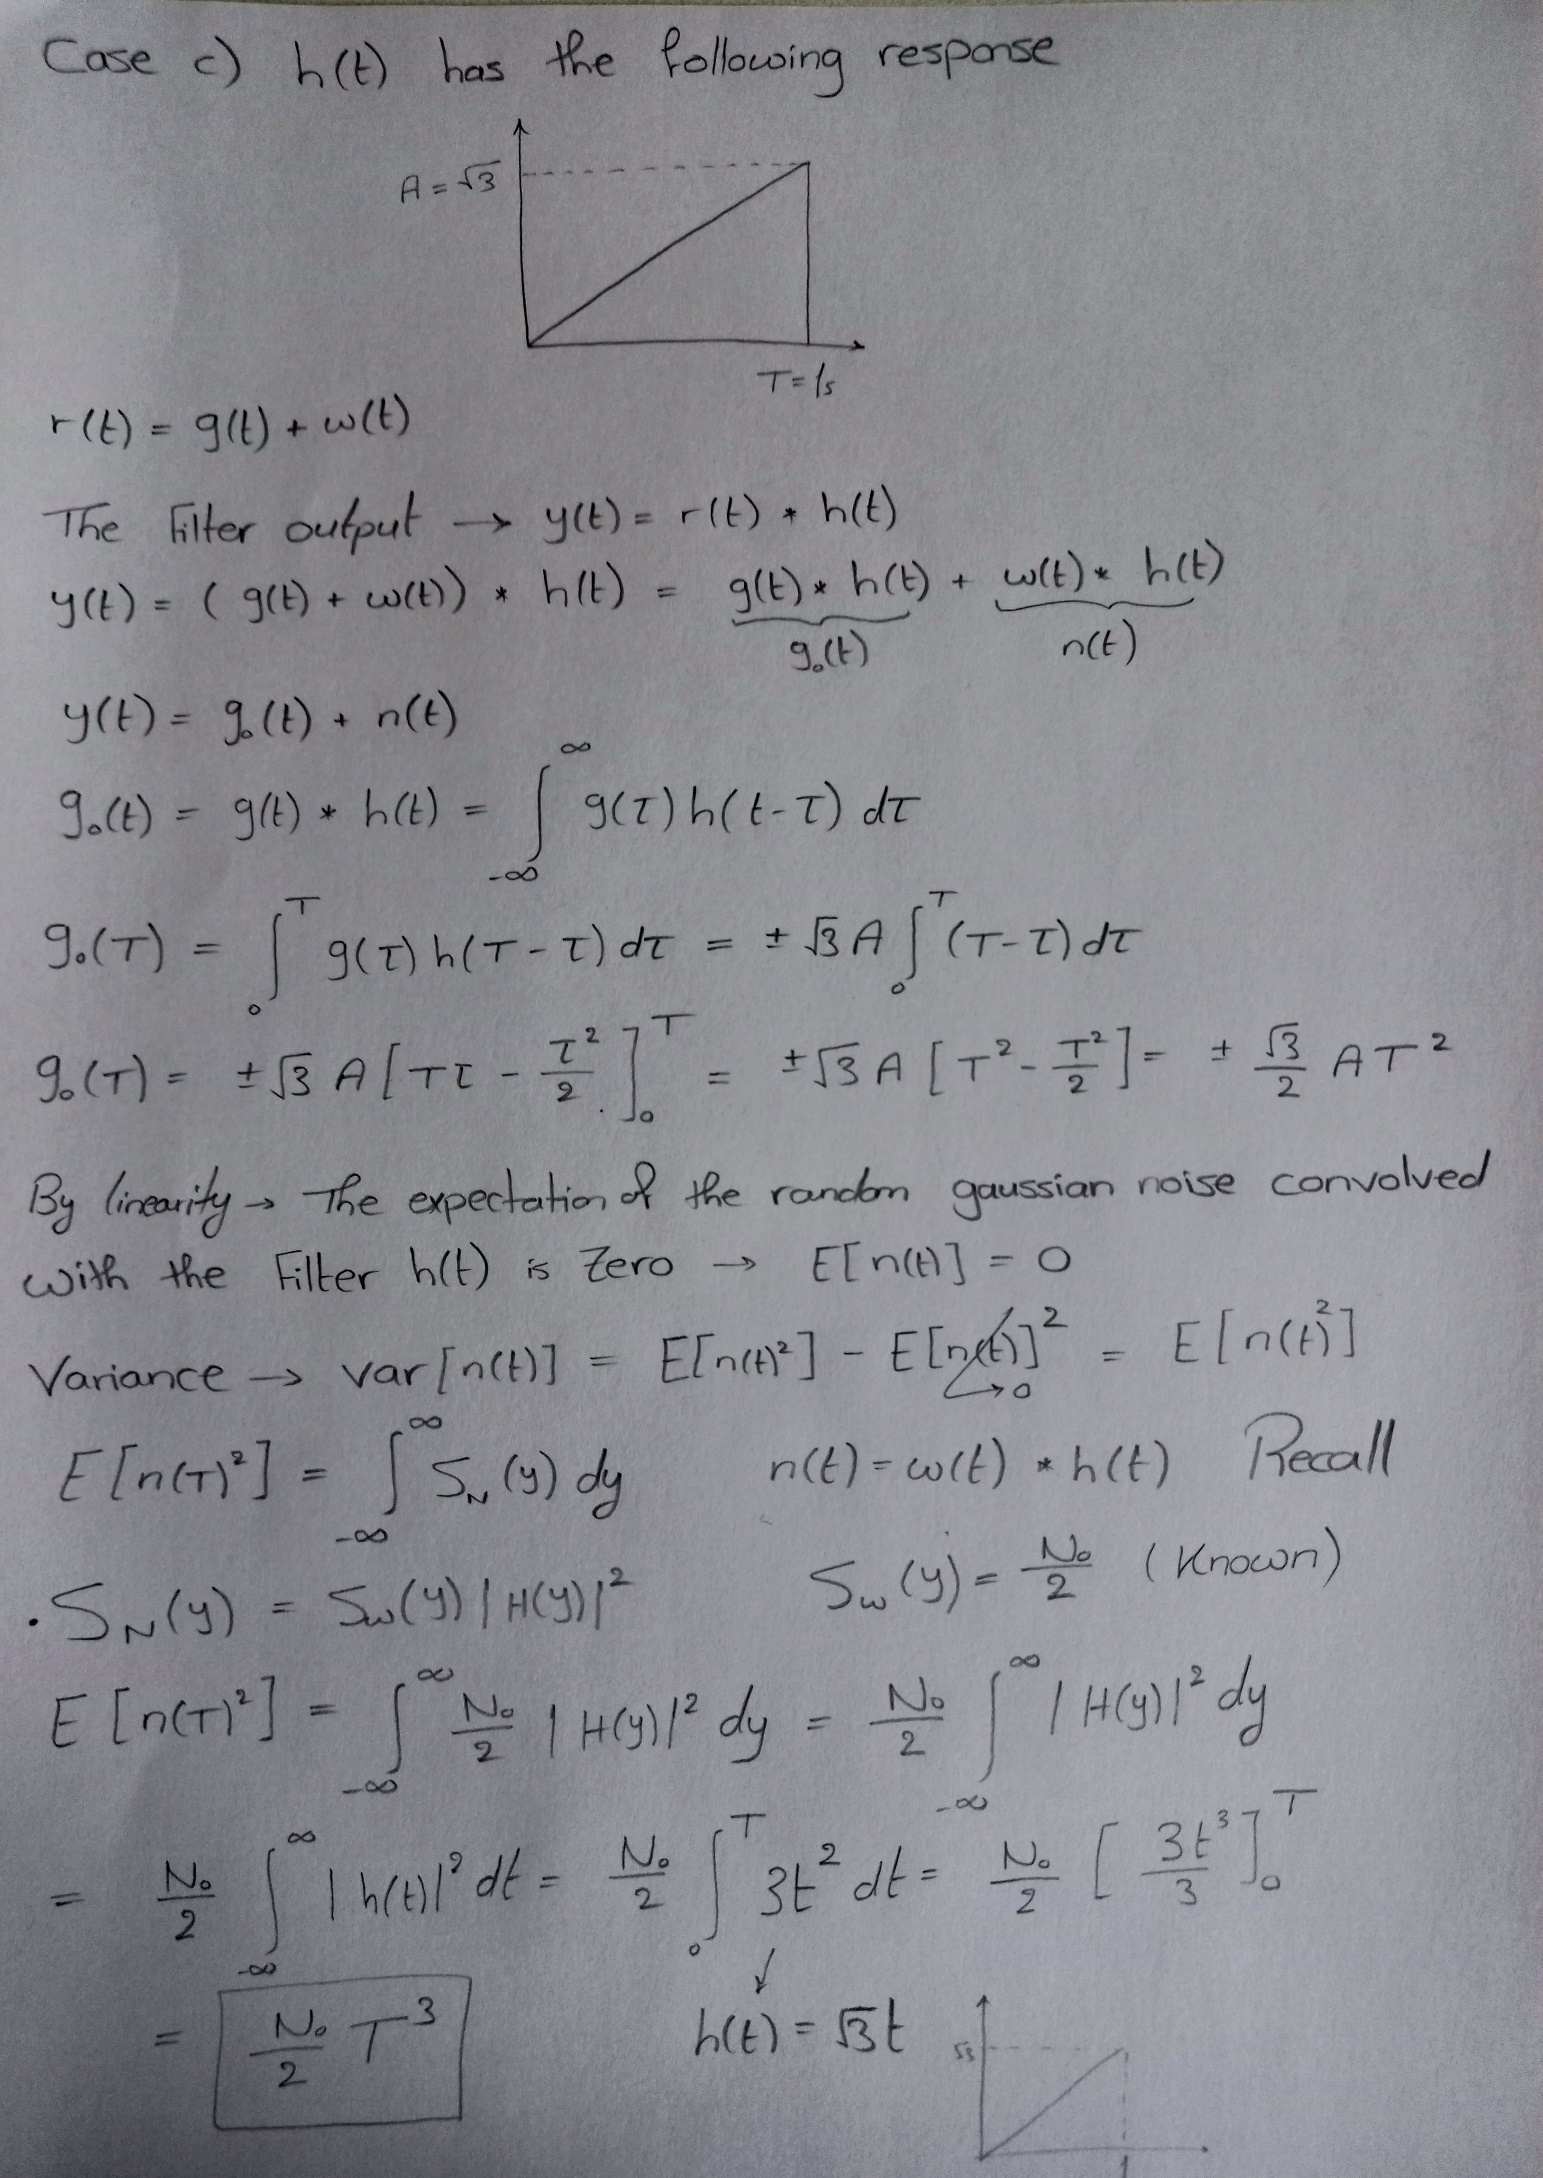 Case c) h(t) has the following response
A = √3
T = 1s
r(t) = g(t) + w(t)
The Filter output → y(t) = r(t) * h(t)
y(t) = ( g(t) + w(t)) * h(t) = g(t) * h(t) + w(t) * h(t)
g₀(t) n(t)
y(t) = g₀(t) + n(t)
g₀(t) = g(t) * h(t) = ∫_{-∞}^{∞} g(τ) h(t-τ) dτ
g₀(T) = ∫_0^T g(τ) h(T-τ) dτ = ± √3 A ∫_0^T (T-τ) dτ
g₀(T) = ±√3 A [Tτ - τ²/2]_0^T = ±√3 A [T² - T²/2] = ± √3/2 AT²
By linearity → The expectation of the random gaussian noise convolved
with the Filter h(t) is Zero → E[n(t)] = 0
Variance → var[n(t)] = E[n(t)²] - E[n(t)]² = E[n(t)²]
→ 0
E[n(T)²] = ∫_{-∞}^{∞} S_N(y) dy n(t) = w(t) * h(t) Recall
. S_N(y) = S_w(y) |H(y)|² S_w(y) = N₀/2 (Known)
E[n(T)²] = ∫_{-∞}^{∞} N₀/2 |H(y)|² dy = N₀/2 ∫_{-∞}^{∞} |H(y)|² dy
= N₀/2 ∫_{-∞}^{∞} |h(t)|² dt = N₀/2 ∫_0^T 3t² dt = N₀/2 [3t³/3]_0^T
= N₀/2 T³ ↓ h(t) = √3t
√3
1